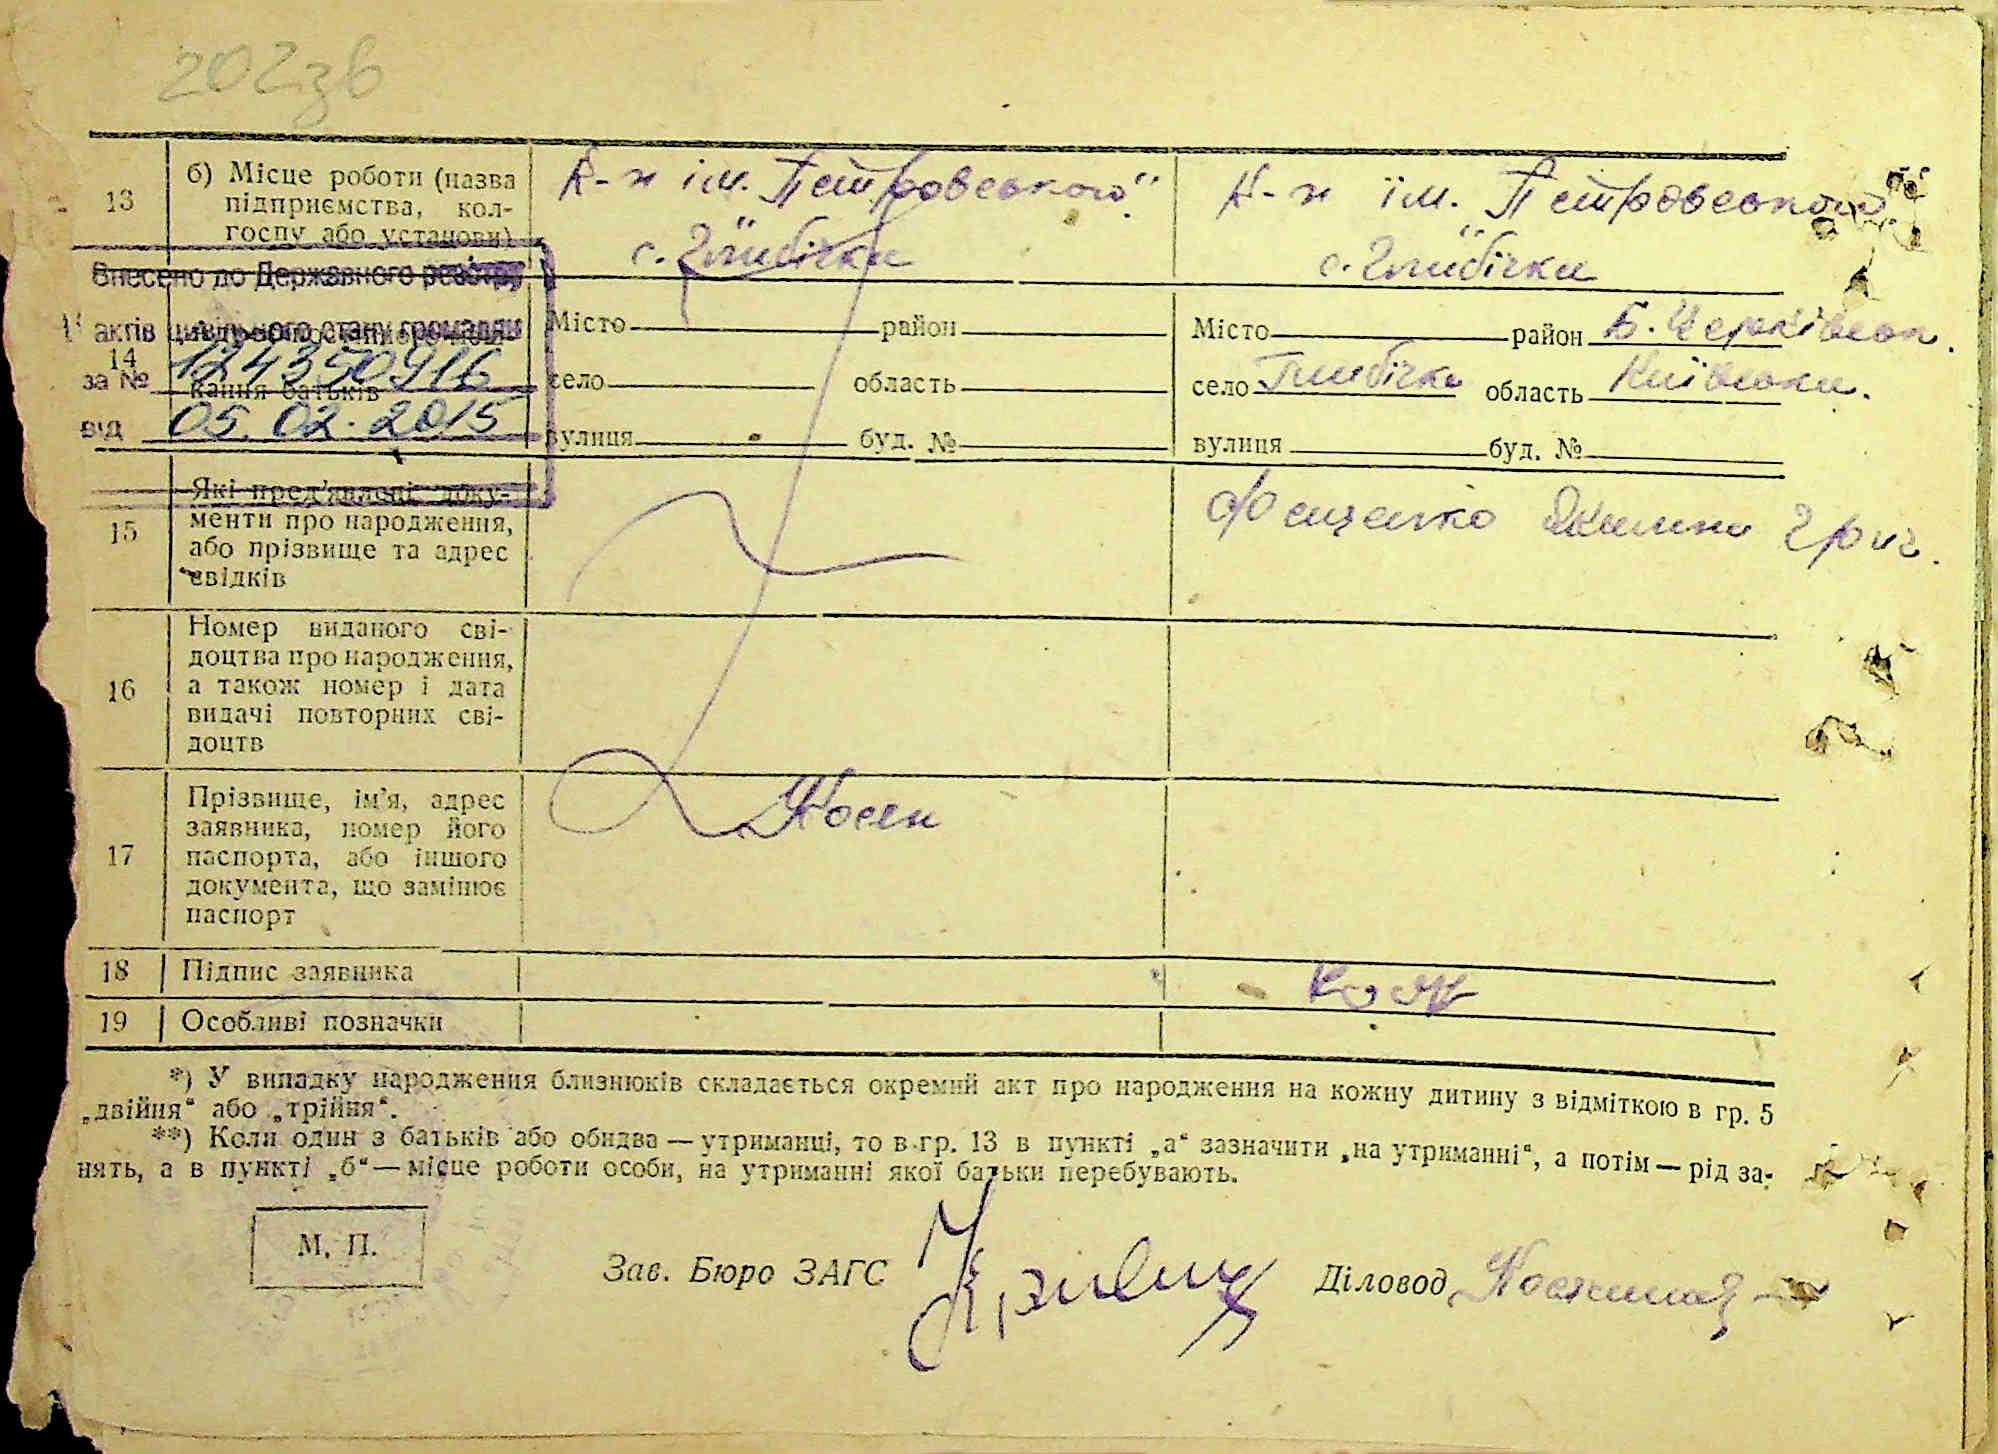 202зв
13
б) Місце роботи (назва
підприємства, кол-
госпу або установи)
К-п ім. Петровського"
с. Глибічки
К-п ім. Петровського
с. Глибічки
Внесено до Державного реєстру
актів цивільного стану громадян
за № 124350916
від 05.02.2015
14
кання батьків
Місто район
село область
вулиця буд. №
Місто район Б. Церківськ.
село Глибічка область Київська.
вулиця буд. №
15
Які пред'явлені доку-
менти про народження,
або прізвище та адрес
свідків
Фещенко Якилина Григ.
16
Номер виданого сві-
доцтва про народження,
а також номер і дата
видачі повторних сві-
доцтв
17
Прізвище, ім'я, адрес
заявника, номер його
паспорта, або іншого
документа, що замінює
паспорт
18 Підпис заявника
19 Особливі позначки
*) У випадку народження близнюків складається окремий акт про народження на кожну дитину з відміткою в гр. 5
„двійня" або „трійня".
**) Коли один з батьків або обидва — утриманці, то в гр. 13 в пункті „а" зазначити „на утриманні", а потім — рід за-
нять, а в пункті „б" — місце роботи особи, на утриманні якої батьки перебувають.
М. П.
Зав. Бюро ЗАГС
Діловод